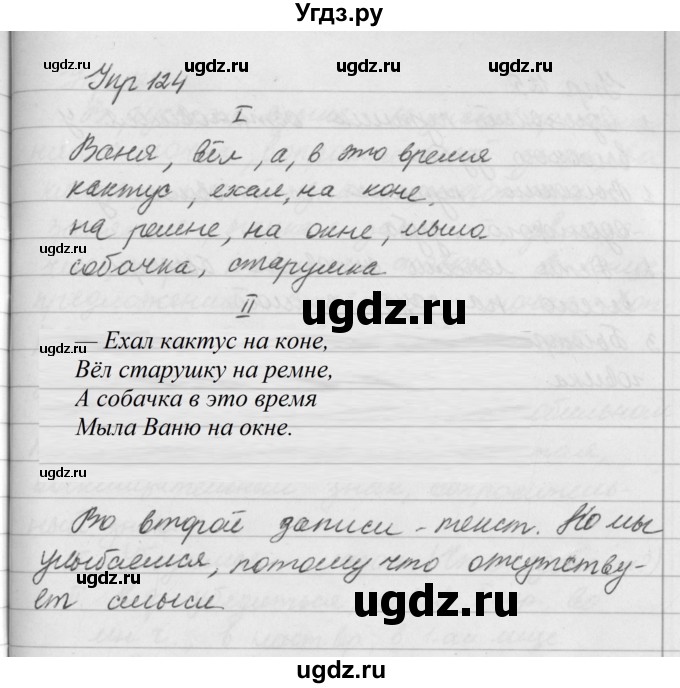 Угдз.ру
ugdz.ru ugdz.ru ugdz.ru
Упр 124
I
Ваня, вёл, а, в это время
ugdz.ru ugdz.ru ugdz.ru
кактус, ехал, на коне,
на ремне, на окне, мыла
ugdz.ru
собачка, старушка
ugdz.ru
II
— Ехал кактус на коне,
ugdz.ru
Вёл старушку на ремне,
А собачка в это время
ugdz.ru ugdz.ru
Мыла Ваню на окне.
ugdz.ru
Во второй записи - текст. Но мы
улыбаемся, потому что отсутству-
ugdz.ru
ет смысл
ugdz.ru
ugdz.ru